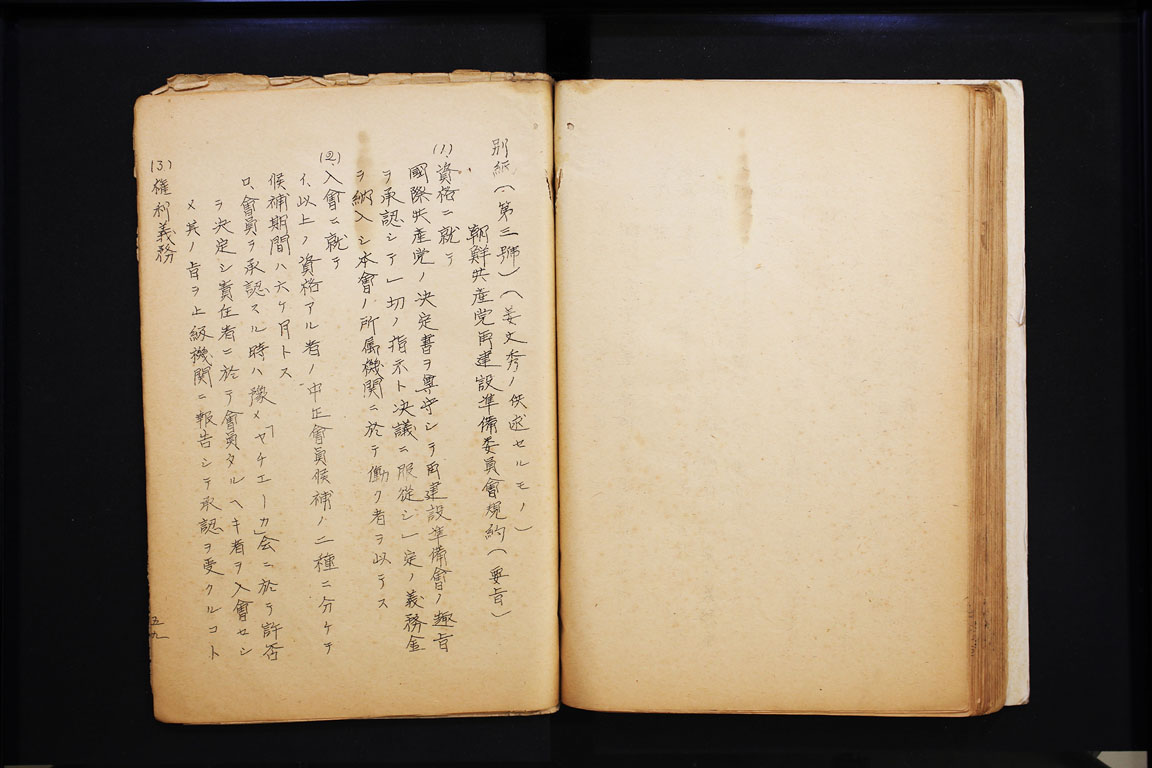 別紙(第三號)(姜文秀ノ供述セルモノ)
朝鮮共産党再建設準備委員會規約(要旨)
(1)、資格ニ就テ
國際共産党ノ決定書ヲ尊守シテ再建設準備會ノ趣旨
ヲ承認シテ一切ノ指示ト決議ニ服從シ一定ノ義務金
ヲ納入シ本會ノ所属機関ニ於テ働ク者ヲ以テス
(2)、入會ニ就テ
イ、以上ノ資格アル者ノ中正會員候補ノ二種ニ分ケテ
候補期間ハ六ケ月トス
ロ、會員ヲ承認スル時ハ豫メ「ヤチエーカ」会ニ於テ許否
ヲ決定シ責任者ニ於テ會員タルヘキ者ヲ入會セシ
メ其ノ旨ヲ上級機関ニ報告シテ承認ヲ受クルコト
(3)權利義務
五九